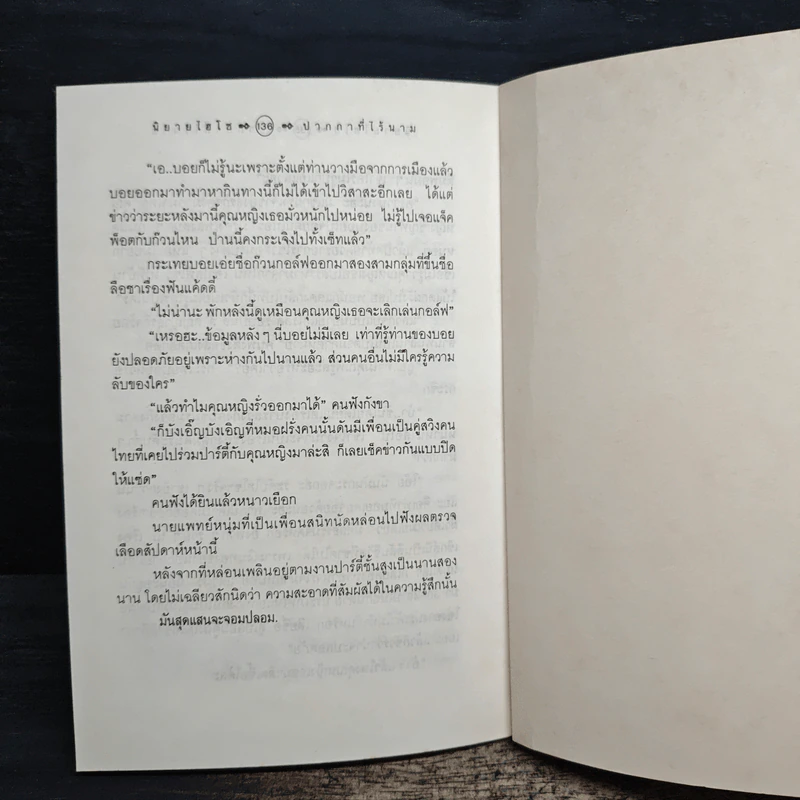 นิยายไฮโซ 136 ปากกาที่ไร้นาม
“เอ..บอยก็ไม่รู้นะเพราะตั้งแต่ท่านวางมือจากการเมืองแล้ว
บอยออกมาทำมาหากินทางนี้ก็ไม่ได้เข้าไปวิสาสะอีกเลย ได้แต่
ข่าวว่าระยะหลังมานี้คุณหญิงเธอมั่วหนักไปหน่อย ไม่รู้ไปเจอแจ็ค
พ็อตกับก๊วนไหน ป่านนี้คงกระเจิงไปทั้งเซ็ทแล้ว”
กระเทยบอยเอ่ยชื่อก๊วนกอล์ฟออกมาสองสามกลุ่มที่ขึ้นชื่อ
ลือชาเรื่องฟันแค้ดดี้
“ไม่น่านะ พักหลังนี้ดูเหมือนคุณหญิงเธอจะเลิกเล่นกอล์ฟ”
“เหรอฮะ..ข้อมูลหลัง ๆ นี่บอยไม่มีเลย เท่าที่รู้ท่านของบอย
ยังปลอดภัยอยู่เพราะห่างกันไปนานแล้ว ส่วนคนอื่นไม่มีใครรู้ความ
ลับของใคร”
“แล้วทำไมคุณหญิงรั่วออกมาได้” คนฟังกังขา
“ก็บังเอิ๊ญบังเอิญที่หมอฝรั่งคนนั้นดันมีเพื่อนเป็นคู่สวิงคน
ไทยที่เคยไปร่วมปาร์ตี้กับคุณหญิงมาล่ะสิ ก็เลยเช็คข่าวกันแบบปิด
ให้แซ่ด”
คนฟังได้ยินแล้วหนาวเยือก
นายแพทย์หนุ่มที่เป็นเพื่อนสนิทนัดหล่อนไปฟังผลตรวจ
เลือดสัปดาห์หน้านี้
หลังจากที่หล่อนเพลินอยู่ตามงานปาร์ตี้ชั้นสูงเป็นนานสอง
นาน โดยไม่เฉลียวสักนิดว่า ความสะอาดที่สัมผัสได้ในความรู้สึกนั้น
มันสุดแสนจะจอมปลอม.